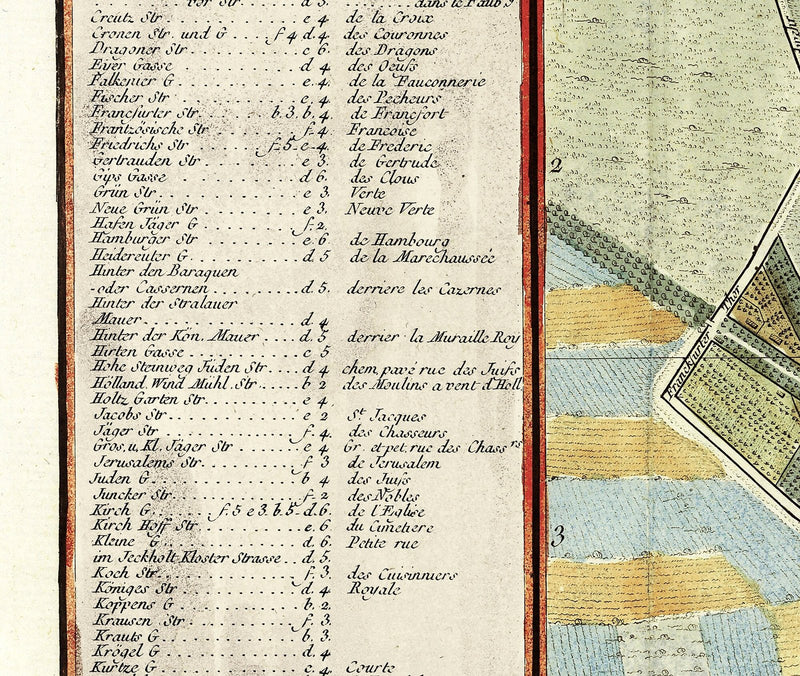 vor Str. d 3. dans le Faub
Creutz Str e 4 de la Croix
Cronen Str. und G. f 4 d. 4. des Couronnes
Dragoner Str. c 6. des Dragons
Eyer Gasse d 4 des Oeufs
Falkenier G. e. 4. de la Fauconnerie
Fischer Str e. 4. des Pecheurs
Francfurter Str. b. 3. b. 4. de Francfort
Frantzösische Str f. 4. Francoise
Friedrichs Str f. 5. e-4. de Frederic
Gertrauden Str. e 3. de Gertrude
Gÿps Gasse d 6. des Clous
Grün Str. e 3. Verte
Neue Grün Str e 3. Neuve Verte
Hafen Jäger G f. 2.
Hamburger Str e. 6. de Hambourg
Heidereuter G. d. 5 de la Marechaussée
Hinter den Baraquen
-oder Cassernen d. 5. derriere les Cazernes
Hinter der Stralauer
Mauer d 4
Hinter der Kön. Mauer d. 5 derrier la Muraille Roy
Hirten Gasse c 5
Hohe Steinweg Juden Str. d 4 chem. pavé rue des Juifs
Holland. Wind Mühl. Str. b 2 des Moulins a vent d'Holl
Holtz Garten Str. e. 4
Jacobs Str. e 2 St. Jacques
Jäger Str f. 4. des Chasseurs
Gros. u. Kl. Jäger Str e 4 Gr. et pet. rue des Chassrs
Jerusalems Str. f 3 de Jerusalem
Juden G b 4 des Juifs
Juncker Str. f. 2 des Nobles
Kirch G. f. 5 e 3. b. 5-d. 6. de l'Eglise
Kirch Hoff Str e. 6 du Cimetiere
Kleine G d. 6. Petite rue
im Jeckholt-Kloster Strasse d. 5.
Koch Str. f. 3. des Cuisinniers
Königes Str d. 4 Royale
Koppens G b. 2.
Krausen Str f. 3.
Krauts G b. 3.
Krögel G d. 4
Kurtze G c. 4. Courte
2
3
Franckfurter Thor